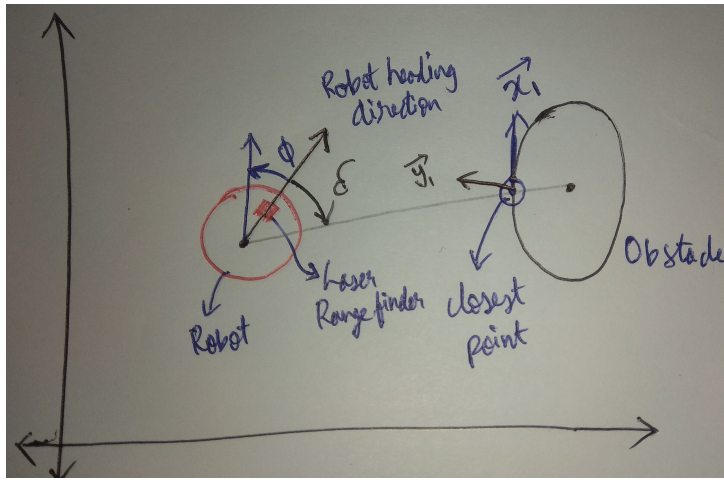 Robot heading
direction
x₁
ϕ
δ
y₁
Obstacle
Laser
Range finder
closest
point
Robot